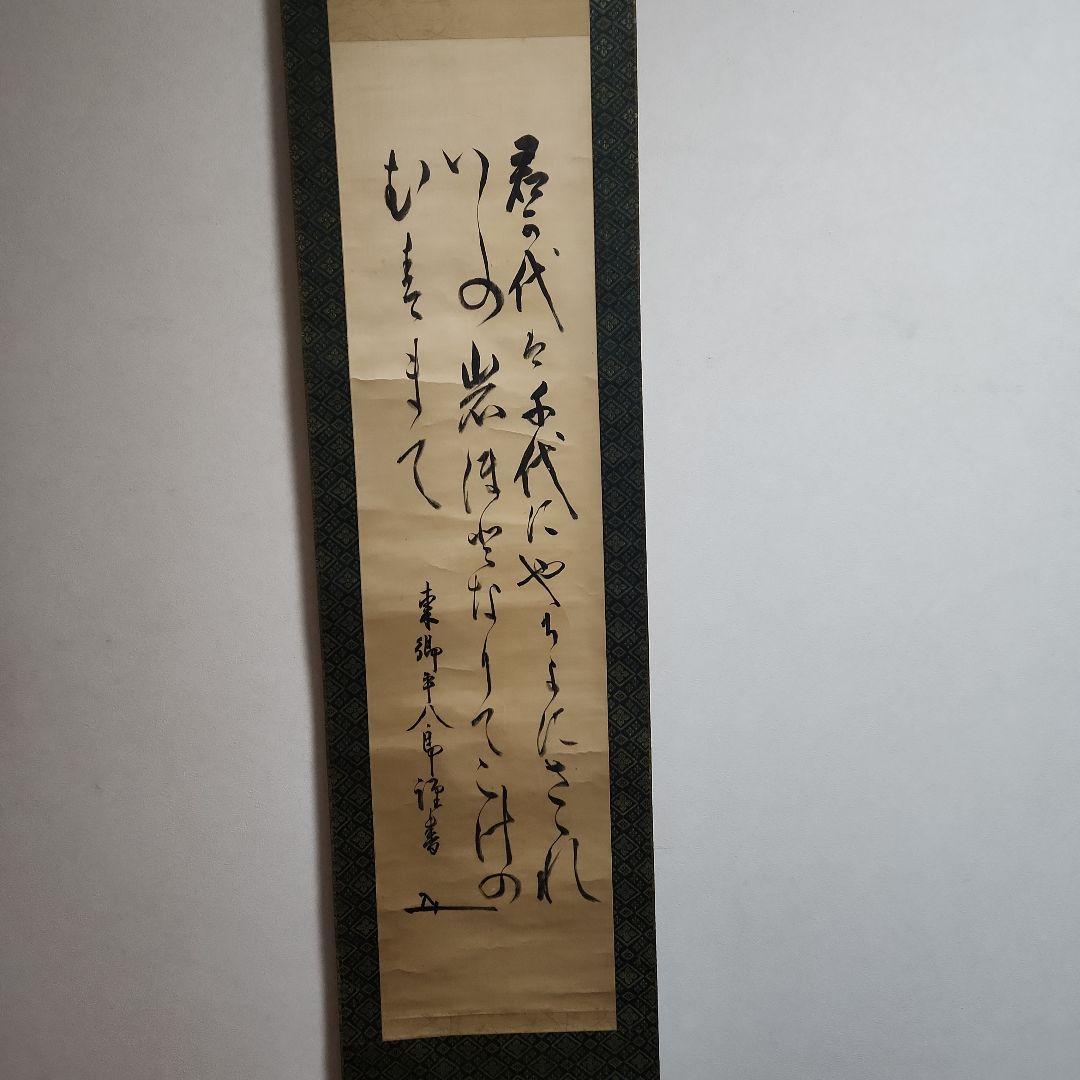 君可代者千代にやちよにさゝれ
いしの岩保登なりてこけの
む春まて
東郷平八郎謹書